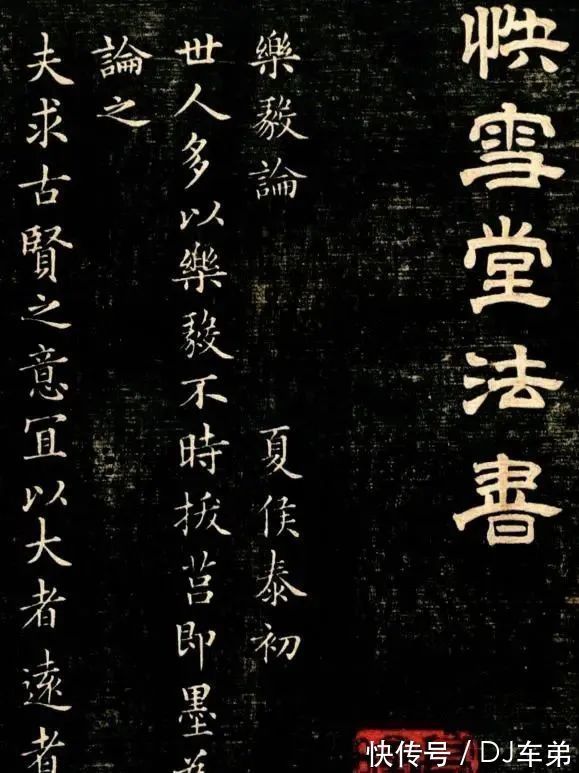 快雪堂法書
樂毅論 夏侯泰初
世人多以樂毅不時拔莒即墨為
論之
夫求古賢之意宜以大者遠者
快传号 / DJ车弟